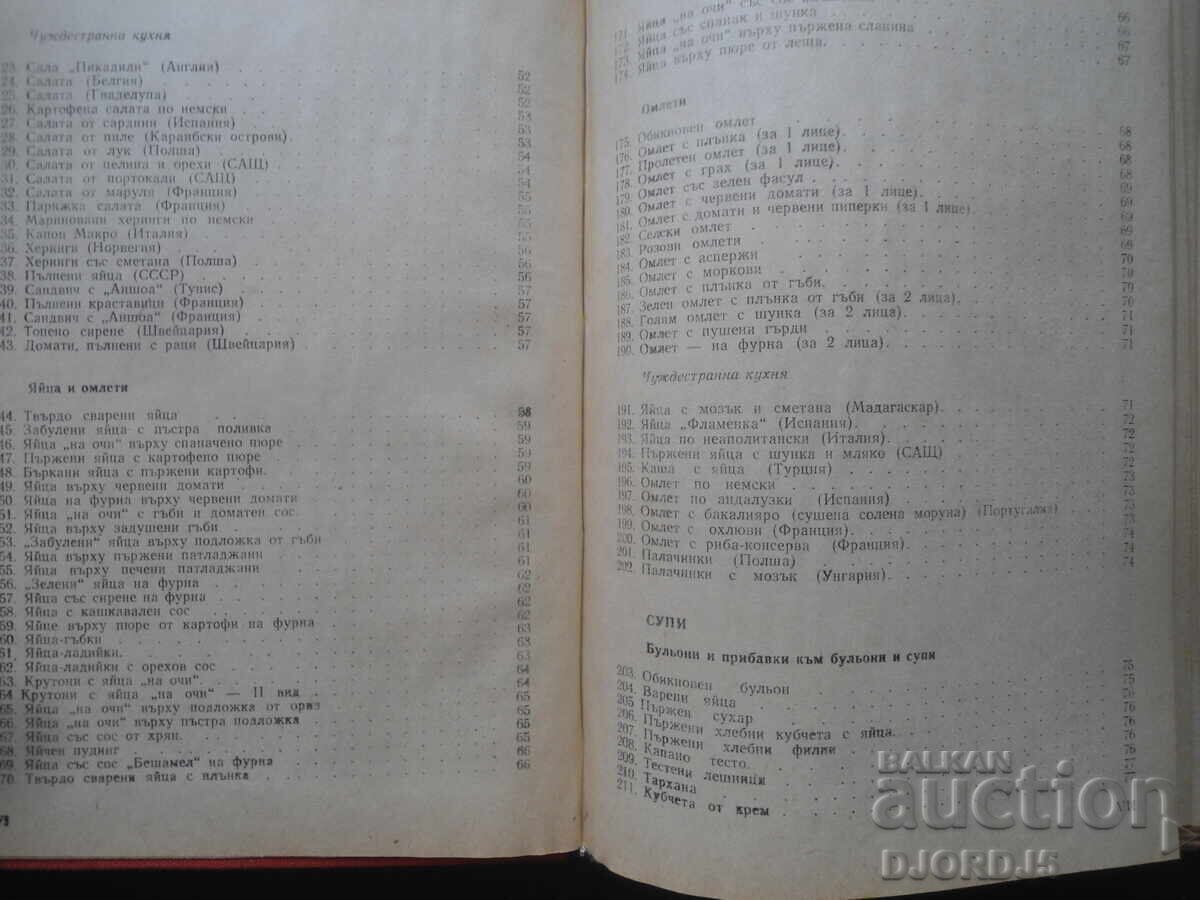 Чуждестранна кухня
23. Сала „Пикадили“ (Англия) 52
24. Салата (Белгия) 52
25. Салата (Гваделупа) 52
26. Картофена салата по немски 52
27. Салата от сардини (Испания) 53
28. Салата от пиле (Караибски острови). 53
29. Салата от лук (Полша) 53
30. Салата от целина и орехи (САЩ) 54
31. Салата от портокали (САЩ) 54
32. Салата от маруля (Франция) 54
33. Парижка салата (Франция) 55
34. Мариновани херинги по немски 55
35. Капон Макро (Италия) 55
36. Херинги (Норвегия) 55
37. Херинги със сметана (Полша) 56
38. Пълнени яйца (СССР) 56
39. Сандвич с „Аншоа“ (Тунис) 57
40. Пълнени краставици (Франция) 57
41. Сандвич с „Аншоа“ (Франция) 57
42. Топено сирене (Швейцария) 57
43. Домати, пълнени с раци (Швейцария) 57
Яйца и омлети
44. Твърдо сварени яйца 58
45. Забулени яйца с пъстра поливка 59
46. Яйца „на очи“ върху спаначено пюре 59
47. Пържени яйца с картофено пюре 59
48. Бъркани яйца с пържени картофи. 59
49. Яйца върху червени домати 60
50 Яйца на фурна върху червени домати 60
51. Яйца „на очи“ с гъби и доматен сос. 60
52. Яйца върху задушени гъби 61
53. „Забулени“ яйца върху подложка от гъби 61
54. Яйца върху пържени патладжани 61
55. Яйца върху печени патладжани 61
56. „Зелени“ яйца на фурна 62
57. Яйца със сирене на фурна 62
58. Яйца с кашкавален сос 62
59. Яйце върху пюре от картофи на фурна 63
60. Яйца-гъбки 63
61. Яйца-ладийки. 63
62. Яйца-ладийки с орехов сос 64
63. Крутони с яйца „на очи“. 64
64 Крутони с яйца „на очи“ — II вид 65
65. Яйца „на очи“ върху подложка от ориз 65
66. Яйца „на очи“ върху пъстра подложка 65
67. Яйца със сос от хрян. 65
68. Яйчен пудинг 66
69. Яйца със сос „Бешамел“ на фурна 66
70. Твърдо сварени яйца с плънка
171. Яйца „на очи“ със сос
172. Яйца със спанак и шунка 66
173. Яйца „на очи“ върху пържена сланина 66
174. Яйца върху пюре от леща. 67
67
Омлети
175. Обикновен омлет 68
176. Омлет с плънка (за 1 лице). 68
177. Пролетен омлет (за 1 лице). 68
178. Омлет с грах (за 1 лице). 68
179. Омлет със зелен фасул 69
180. Омлет с червени домати (за 1 лице). 69
181. Омлет с домати и червени пиперки (за 1 лице). 69
182. Селски омлет 69
183. Розови омлети 69
184. Омлет с аспержи 70
185. Омлет с моркови 70
186. Омлет с плънка от гъби. 70
187. Зелен омлет с плънка от гъби (за 2 лица). 70
188. Голям омлет с шунка (за 2 лица). 71
189. Омлет с пушени гърди 71
190. Омлет — на фурна (за 2 лица). 71
Чуждестранна кухня
191. Яйца с мозък и сметана (Мадагаскар). 71
192. Яйца „Фламенка“ (Испания) 72
193. Яйца по неаполитански (Италия) 72
194. Пържени яйца с шунка и мляко (САЩ) 72
195. Каша с яйца (Турция) 72
196. Омлет по немски 73
197. Омлет по андалузки (Испания) 73
198. Омлет с бакалияро (сушена солена моруна) (Португалия) 73
199. Омлет с охлюви (Франция). 73
200. Омлет с риба-консерва (Франция). 74
201. Палачинки (Полша) 74
202. Палачинки с мозък (Унгария). 74
СУПИ
Бульони и прибавки към бульони и супи
203. Обикновен бульон 75
204. Варени яйца 75
205 Пържен сухар 76
206. Пържени хлебни кубчета с яйца. 76
207. Пържени хлебни филии 76
208. Капано тесто. 76
209. Тестени лешници
210. Тархана
211. Кубчета от крем
VII
BALKAN
auction
DJORDJ5